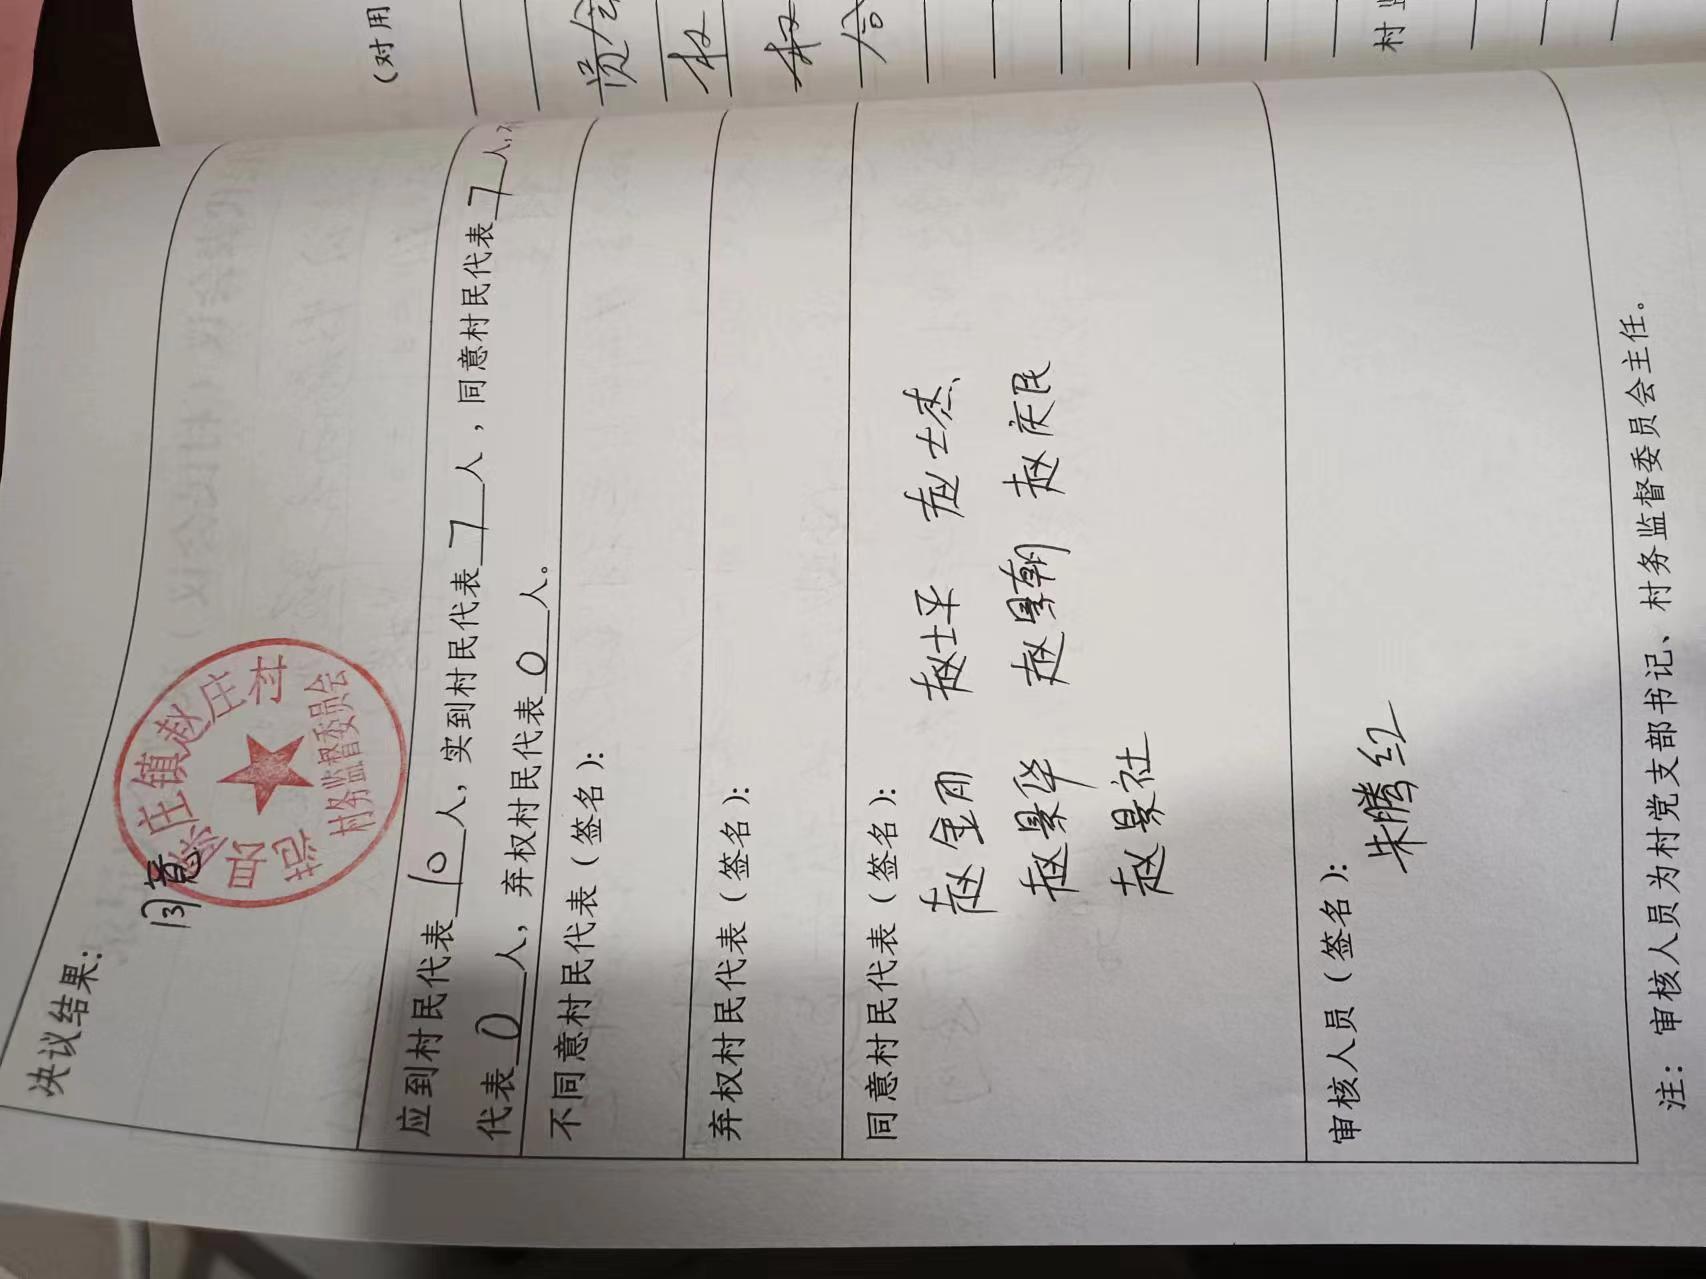 决议结果：
同意
赵庄村
村务监督委员会
应到村民代表10人，实到村民代表7人，同意村民代表7人，不
代表0人，弃权村民代表0人。
不同意村民代表（签名）：
弃权村民代表（签名）：
同意村民代表（签名）：
赵金 赵士平 赵士杰
赵景华 赵景朝 赵庆民
赵景社
审核人员（签名）：
朱腾红
注：审核人员为村党支部书记、村务监督委员会主任。
（对用
村